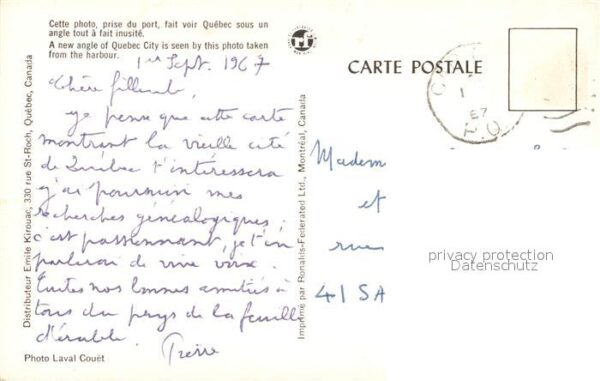 Cette photo, prise du port, fait voir Québec sous un
angle tout à fait inusité.
A new angle of Quebec City is seen by this photo taken
from the harbour.
1er Sept. 1967
Chère
je pense que cette carte
montrant la vieille cité
de Québec t'intéressera
j'ai poursuivi mes
recherches généalogiques.
c'est passionnant, je t'en
parlerai de vive voix.
Toutes nos bonnes amitiés à
tous du pays de la feuille
d'érable. Pierre
Photo Laval Couët
Distributeur Emile Kirouac, 330 rue St-Roch, Québec, Canada
Imprimé par Ronalds-Federated Ltd., Montréal, Canada
CARTE POSTALE
67
P.Q.
Madem
et
rue
41 SA
privacy protection
Datenschutz